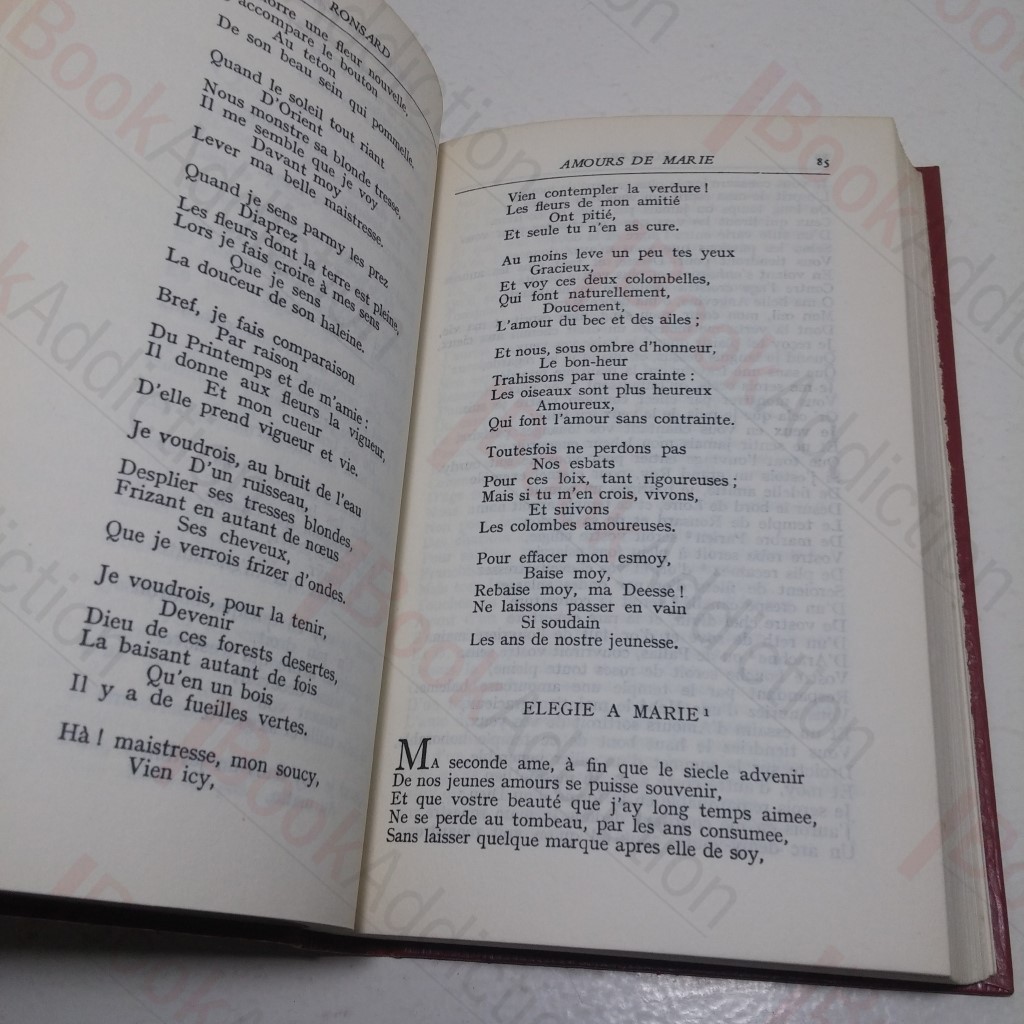 RONSARD
une fleur nouvelle,
accompare le bouton
Au teton
De son beau sein qui pommelle.
Quand le soleil tout riant
D'Orient
Nous monstre sa blonde tresse,
Il me semble que je voy
Davant moy
Lever ma belle maistresse.
Quand je sens parmy les prez
Diaprez
Les fleurs dont la terre est pleine,
Lors je fais croire à mes sens
Que je sens
La douceur de son haleine.
Bref, je fais comparaison
Par raison
Du Printemps et de m'amie :
Il donne aux fleurs la vigueur,
Et mon cueur
D'elle prend vigueur et vie.
Je voudrois, au bruit de l'eau
D'un ruisseau,
Desplier ses tresses blondes,
Frizant en autant de nœus
Ses cheveux,
Que je verrois frizer d'ondes.
Je voudrois, pour la tenir,
Devenir
Dieu de ces forests desertes,
La baisant autant de fois
Qu'en un bois
Il y a de fueilles vertes.
Hà ! maistresse, mon soucy,
Vien icy,
AMOURS DE MARIE 85
Vien contempler la verdure !
Les fleurs de mon amitié
Ont pitié,
Et seule tu n'en as cure.
Au moins leve un peu tes yeux
Gracieux,
Et voy ces deux colombelles,
Qui font naturellement,
Doucement,
L'amour du bec et des ailes ;
Et nous, sous ombre d'honneur,
Le bon-heur
Trahissons par une crainte :
Les oiseaux sont plus heureux
Amoureux,
Qui font l'amour sans contrainte.
Toutesfois ne perdons pas
Nos esbats
Pour ces loix, tant rigoureuses ;
Mais si tu m'en crois, vivons,
Et suivons
Les colombes amoureuses.
Pour effacer mon esmoy,
Baise moy,
Rebaise moy, ma Deesse !
Ne laissons passer en vain
Si soudain
Les ans de nostre jeunesse.
ELEGIE A MARIE ¹
MA seconde ame, à fin que le siecle advenir
De nos jeunes amours se puisse souvenir,
Et que vostre beauté que j'ay long temps aimee,
Ne se perde au tombeau, par les ans consumee,
Sans laisser quelque marque apres elle de soy,
BookAddiction